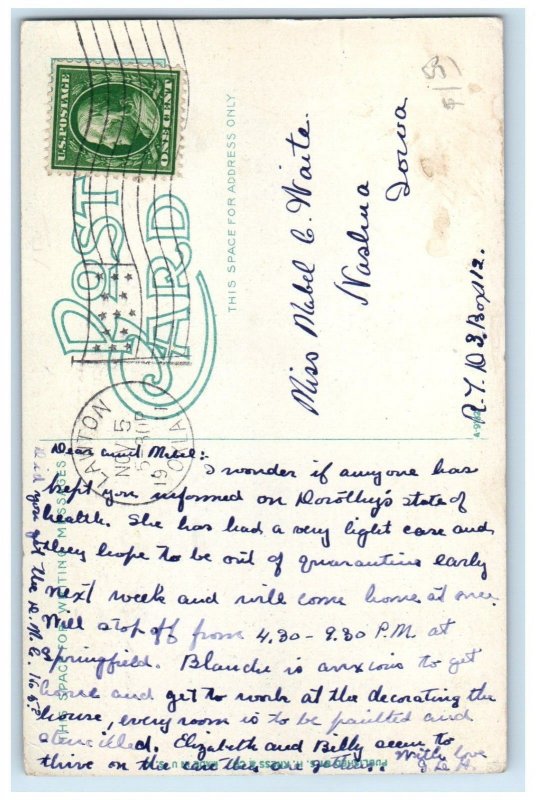 U.S. POSTAGE
ONE CENT
POST CARD
THIS SPACE FOR ADDRESS ONLY.
Miss Mabel C. Waite.
Nashua
Iowa
R.F.D 3, Box 112.
LAWTON
NOV 5
5-30P
1911
OKLA
THIS SPACE FOR WRITING MESSAGES
Dear aunt Mabel:-
I wonder if anyone has
kept you informed on Dorothy's state of
health. She has had a very light case and
they hope to be out of quarantine early
next week and will come home at once.
Will stop off from 4.30-9.30 P.M. at
Springfield. Blanche is anxious to get
home and get to work at the decorating the
house, every room is to be painted and
stencilled. Elizabeth and Billy seem to
thrive on the care they are getting.
With love
Did you get the
PUBLISHED BY S. H. KRESS & CO. MADE IN U.S.